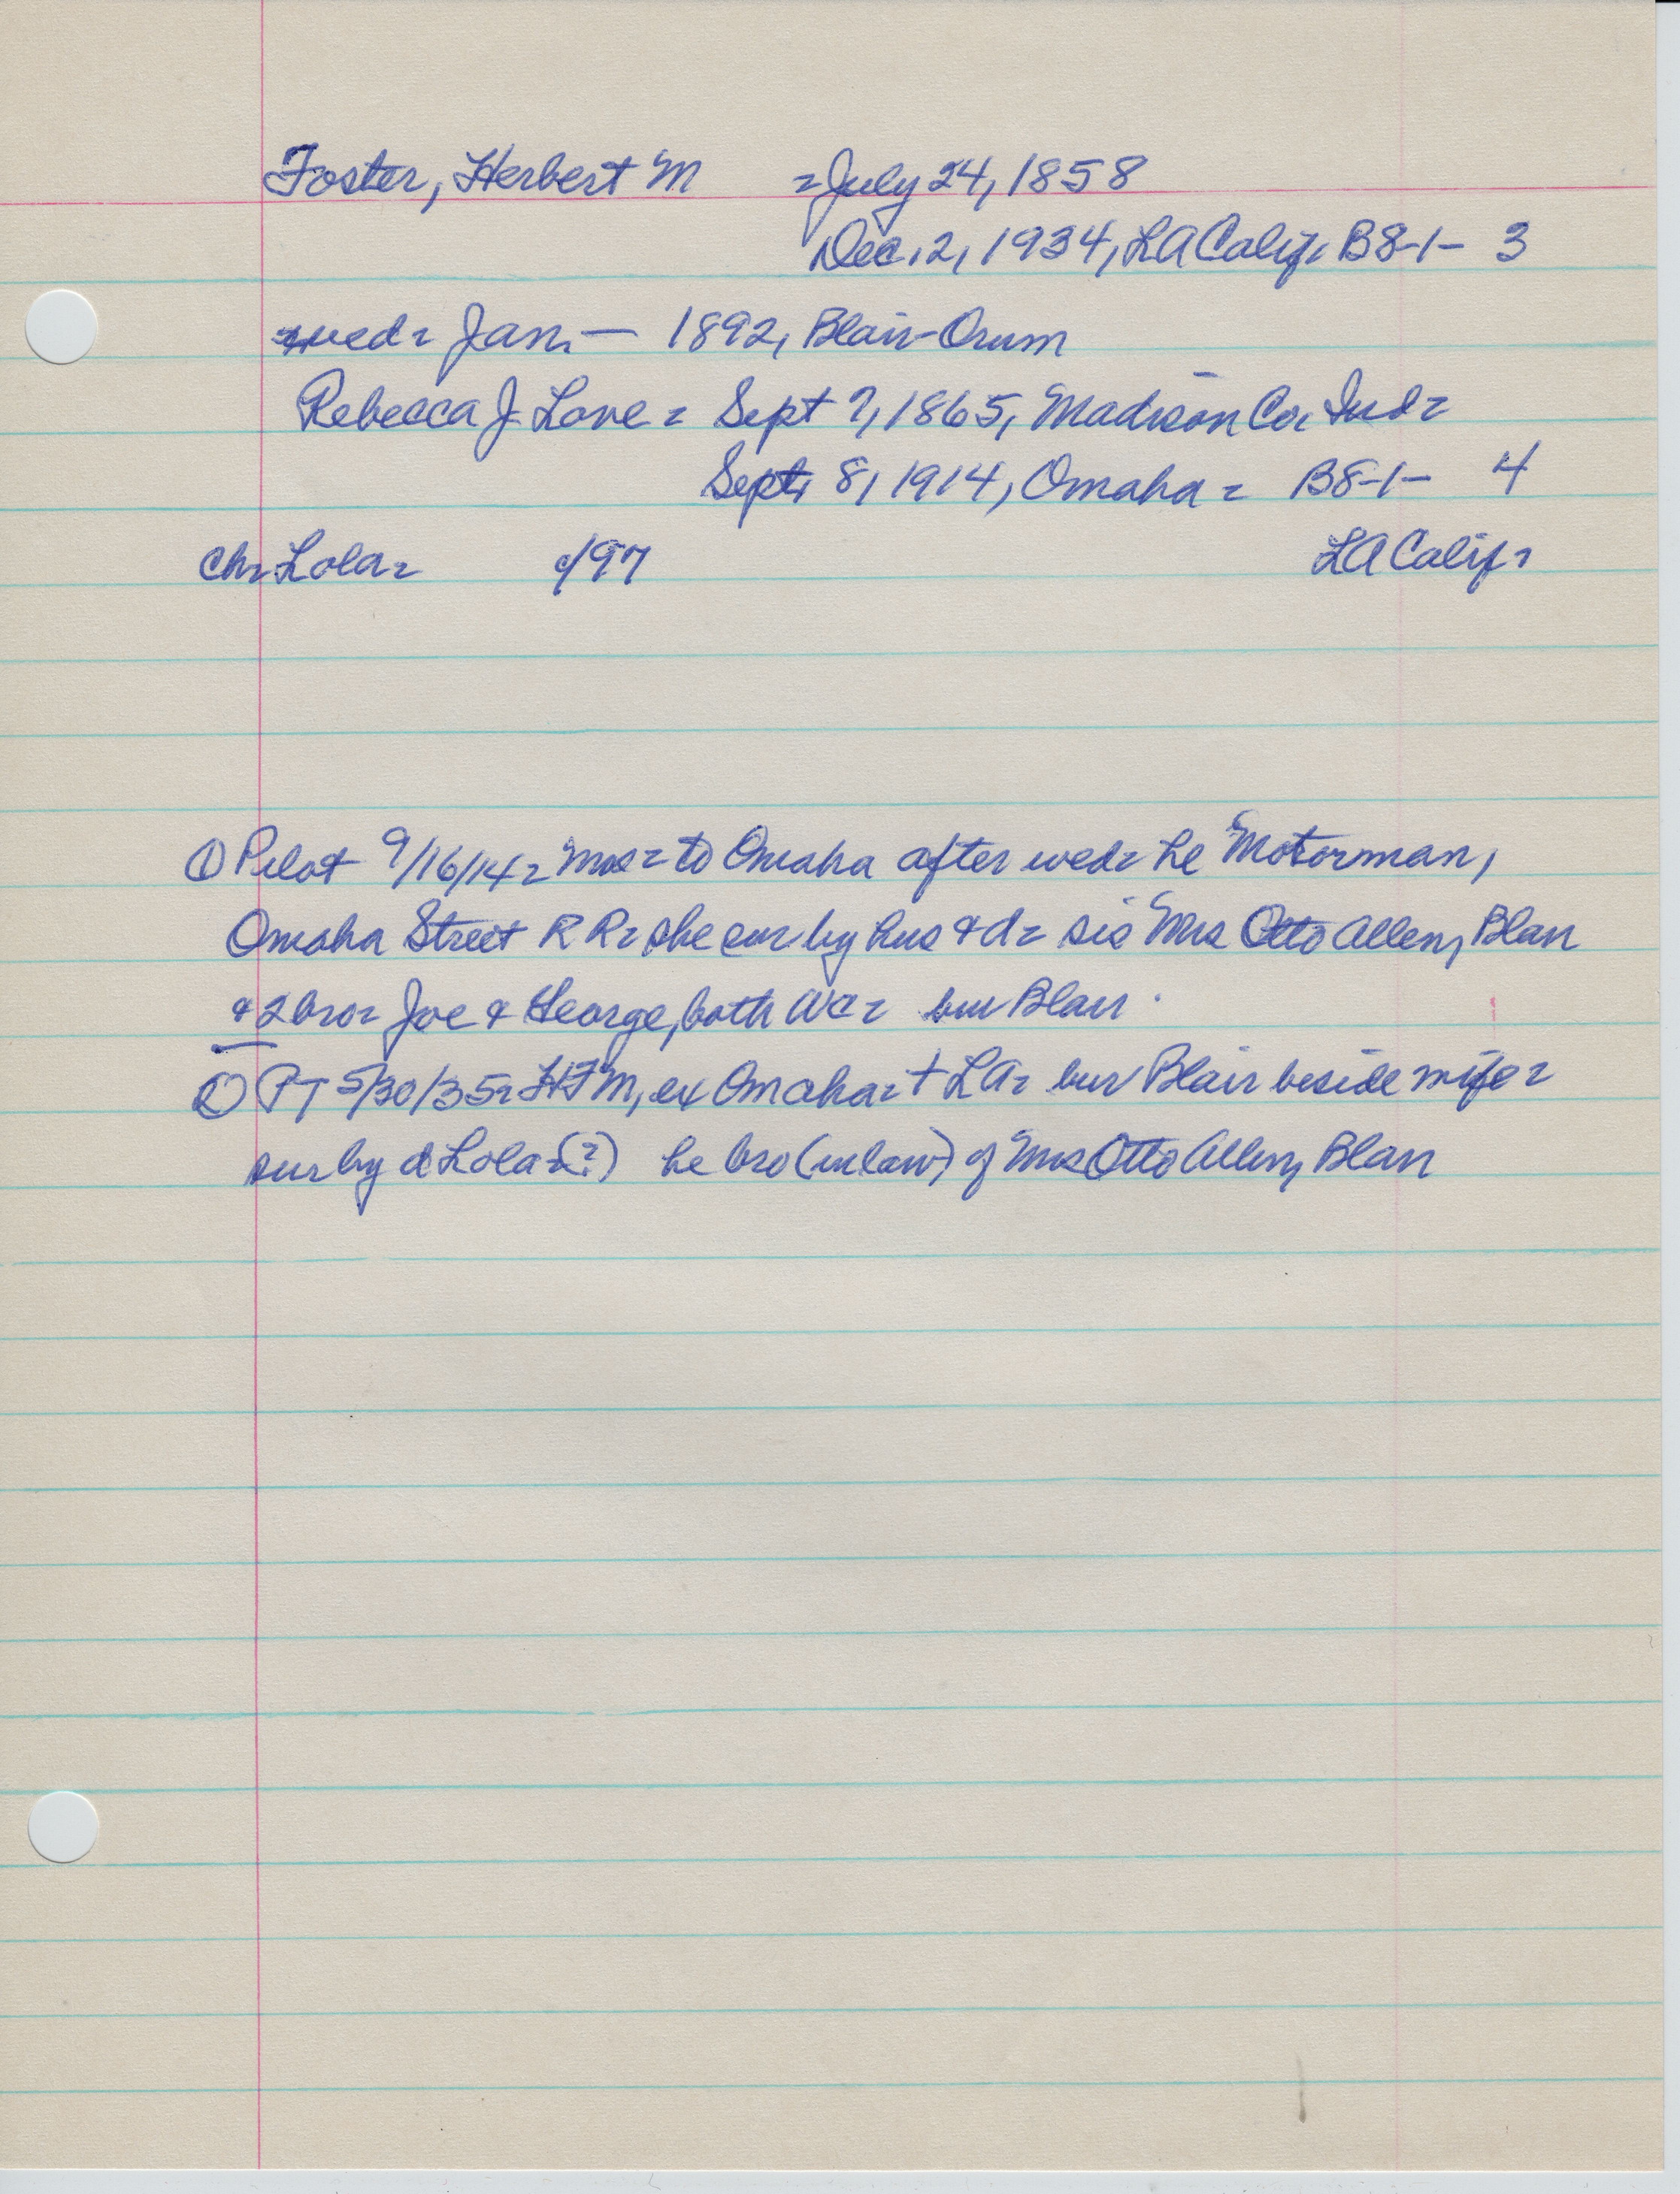 Foster, Herbert M = July 24, 1858
Dec. 2, 1934, LA Calif. B8-1- 3
wed = Jan. — 1892, Blair-Orum
Rebecca J. Love = Sept 7, 1865, Madison Co. Ind =
Sept. 8, 1914, Omaha = B8-1- 4
ch = Lola = c/97 LA Calif =
① Pilot 9/16/14 = to Omaha after wed = he Motorman,
Omaha Street RR = she sur by hus & d = sis Mrs Otto Allen, Blair
& 2 bro = Joe & George, both WC = bur Blair.
② PT 5/30/35 = HFM, ex Omaha = + LA = bur Blair beside wife =
sur by d Lola = (?) he bro (inlaw) of Mrs Otto Allen, Blair